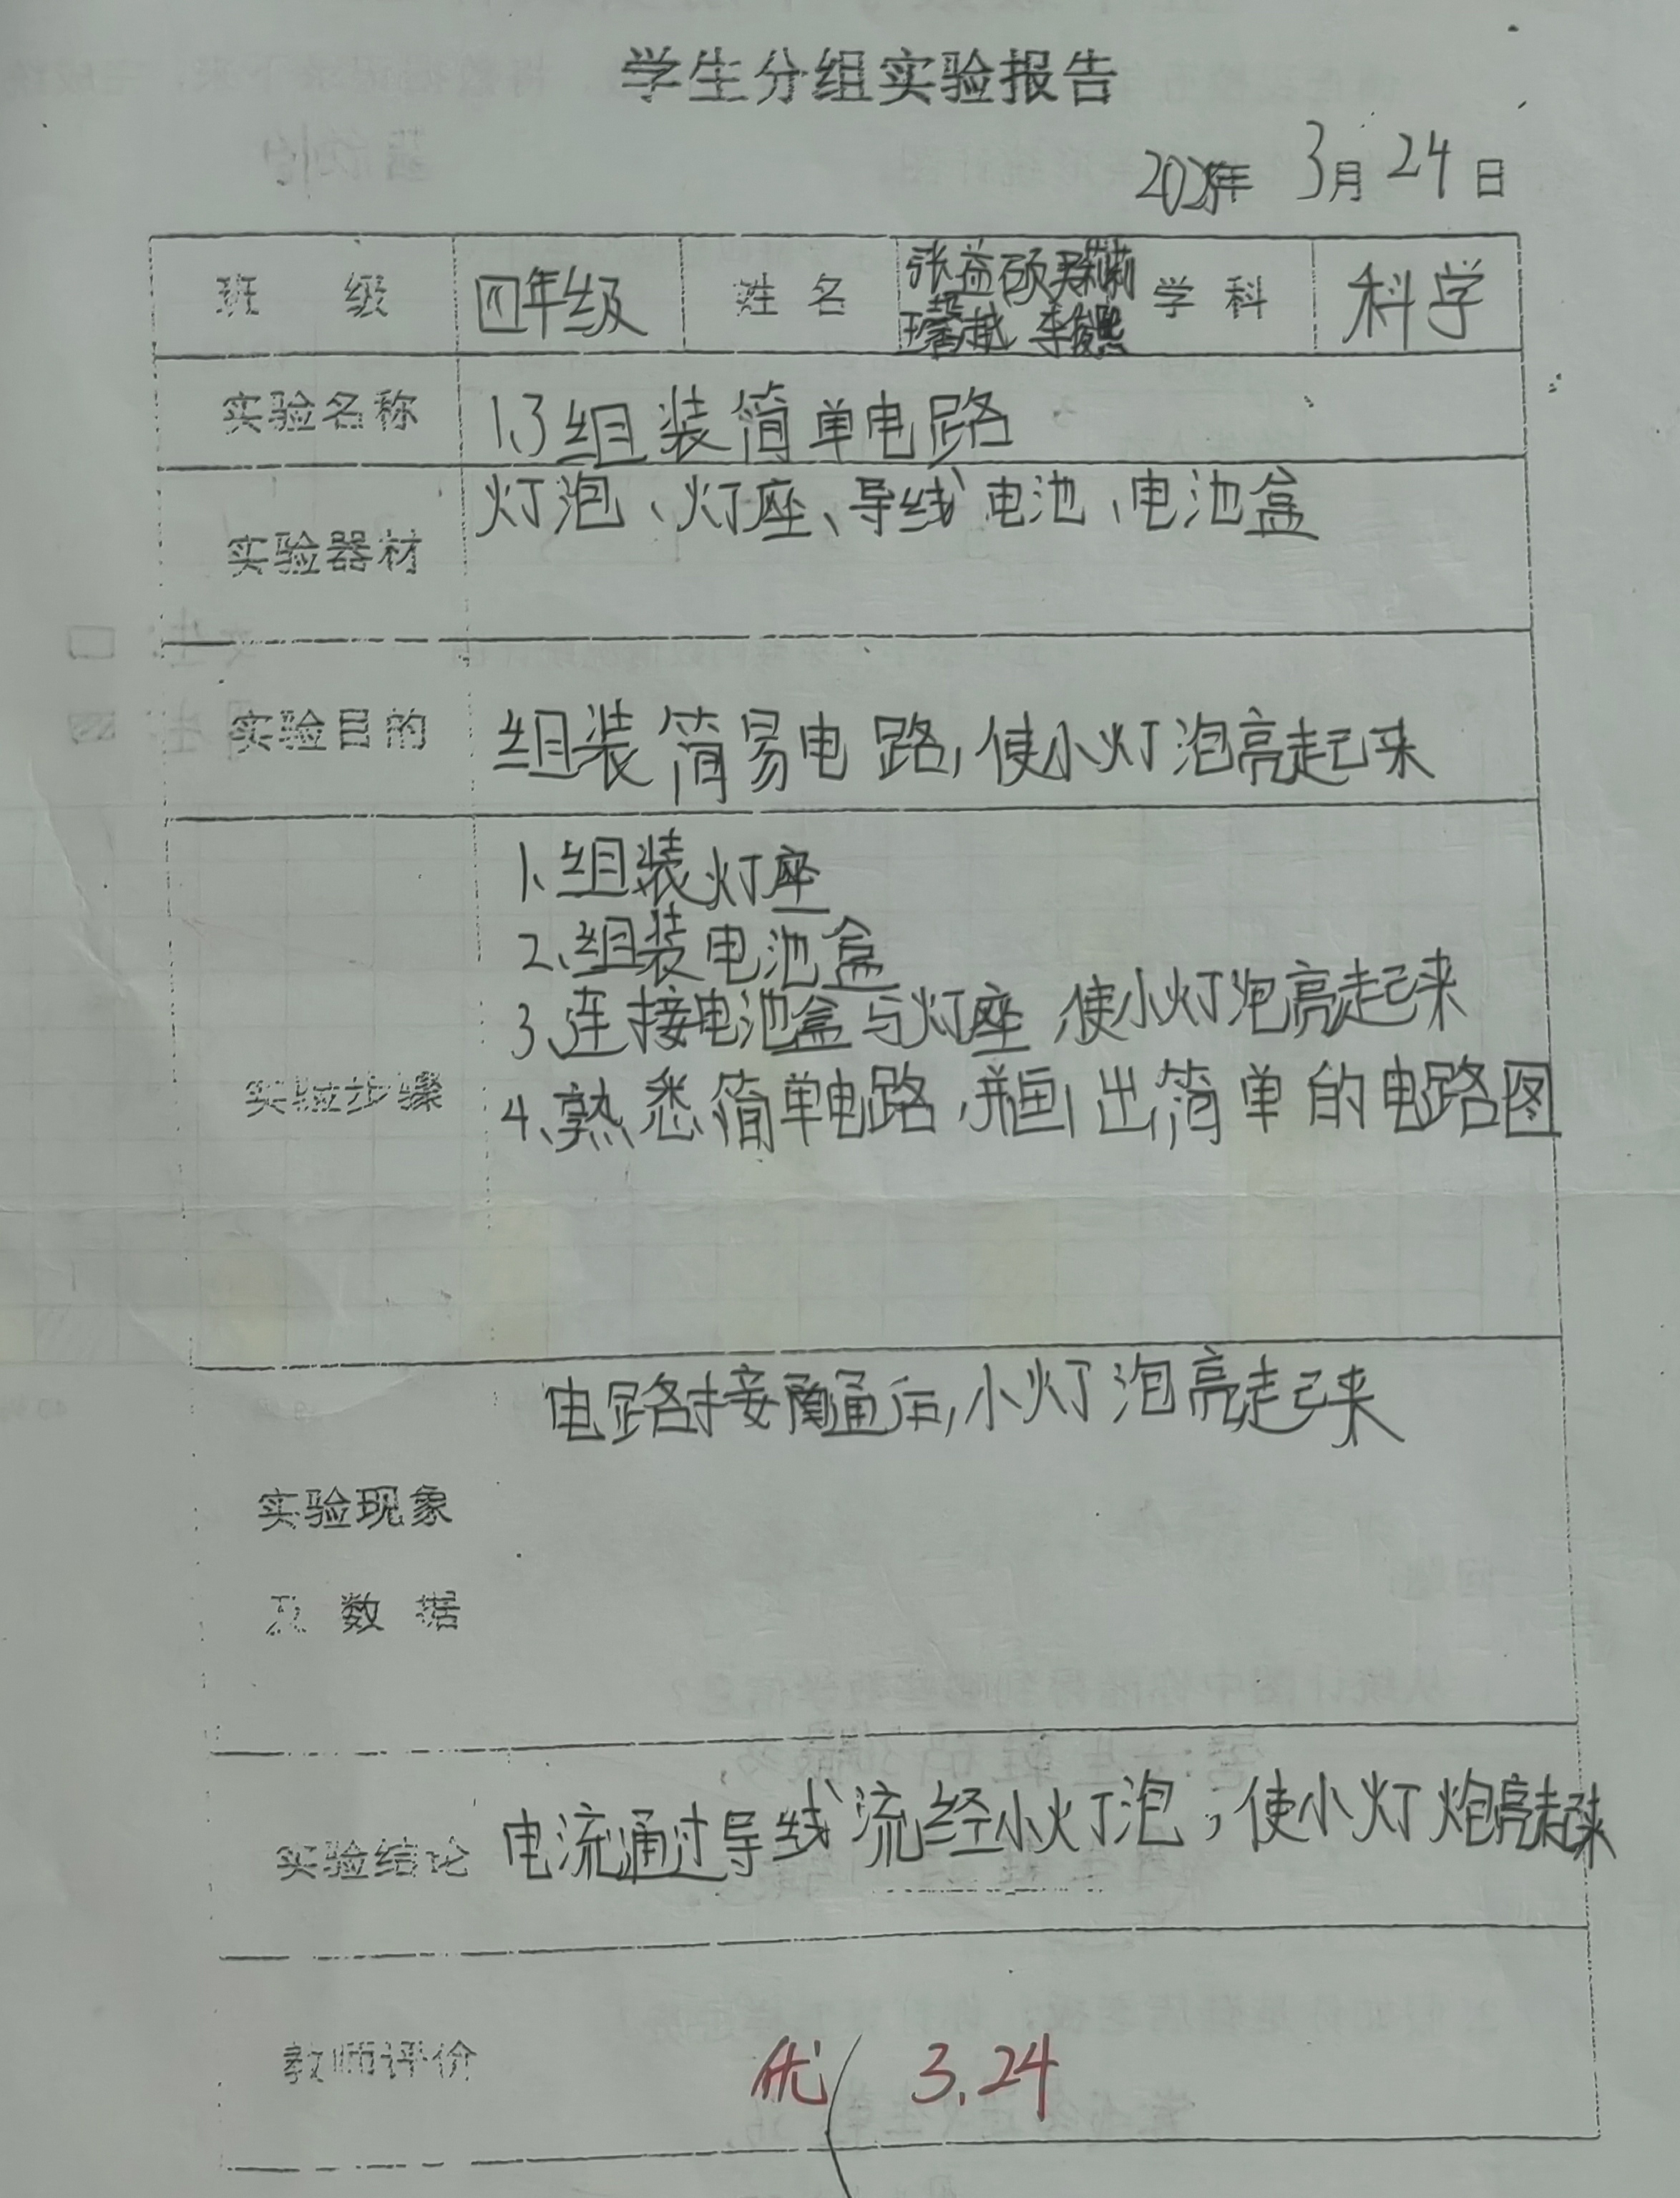 学生分组实验报告
年 3月 24日
班 级 四年级 姓 名 张益硕 学 科 科学
实验名称 1.3组装简单电路
实验器材 灯泡、灯座、导线、电池、电池盒
实验目的 组装简易电路,使小灯泡亮起来
1、组装灯座
2、组装电池盒
3、连接电池盒与灯座,使小灯炮亮起来
实验步骤 4、熟悉简单电路,并画出简单的电路图
电路接通后,小灯泡亮起来
实验现象
及 数 据
实验结论 电流通过导线流经小灯泡,使小灯炮亮起来
教师评价 优 3.24